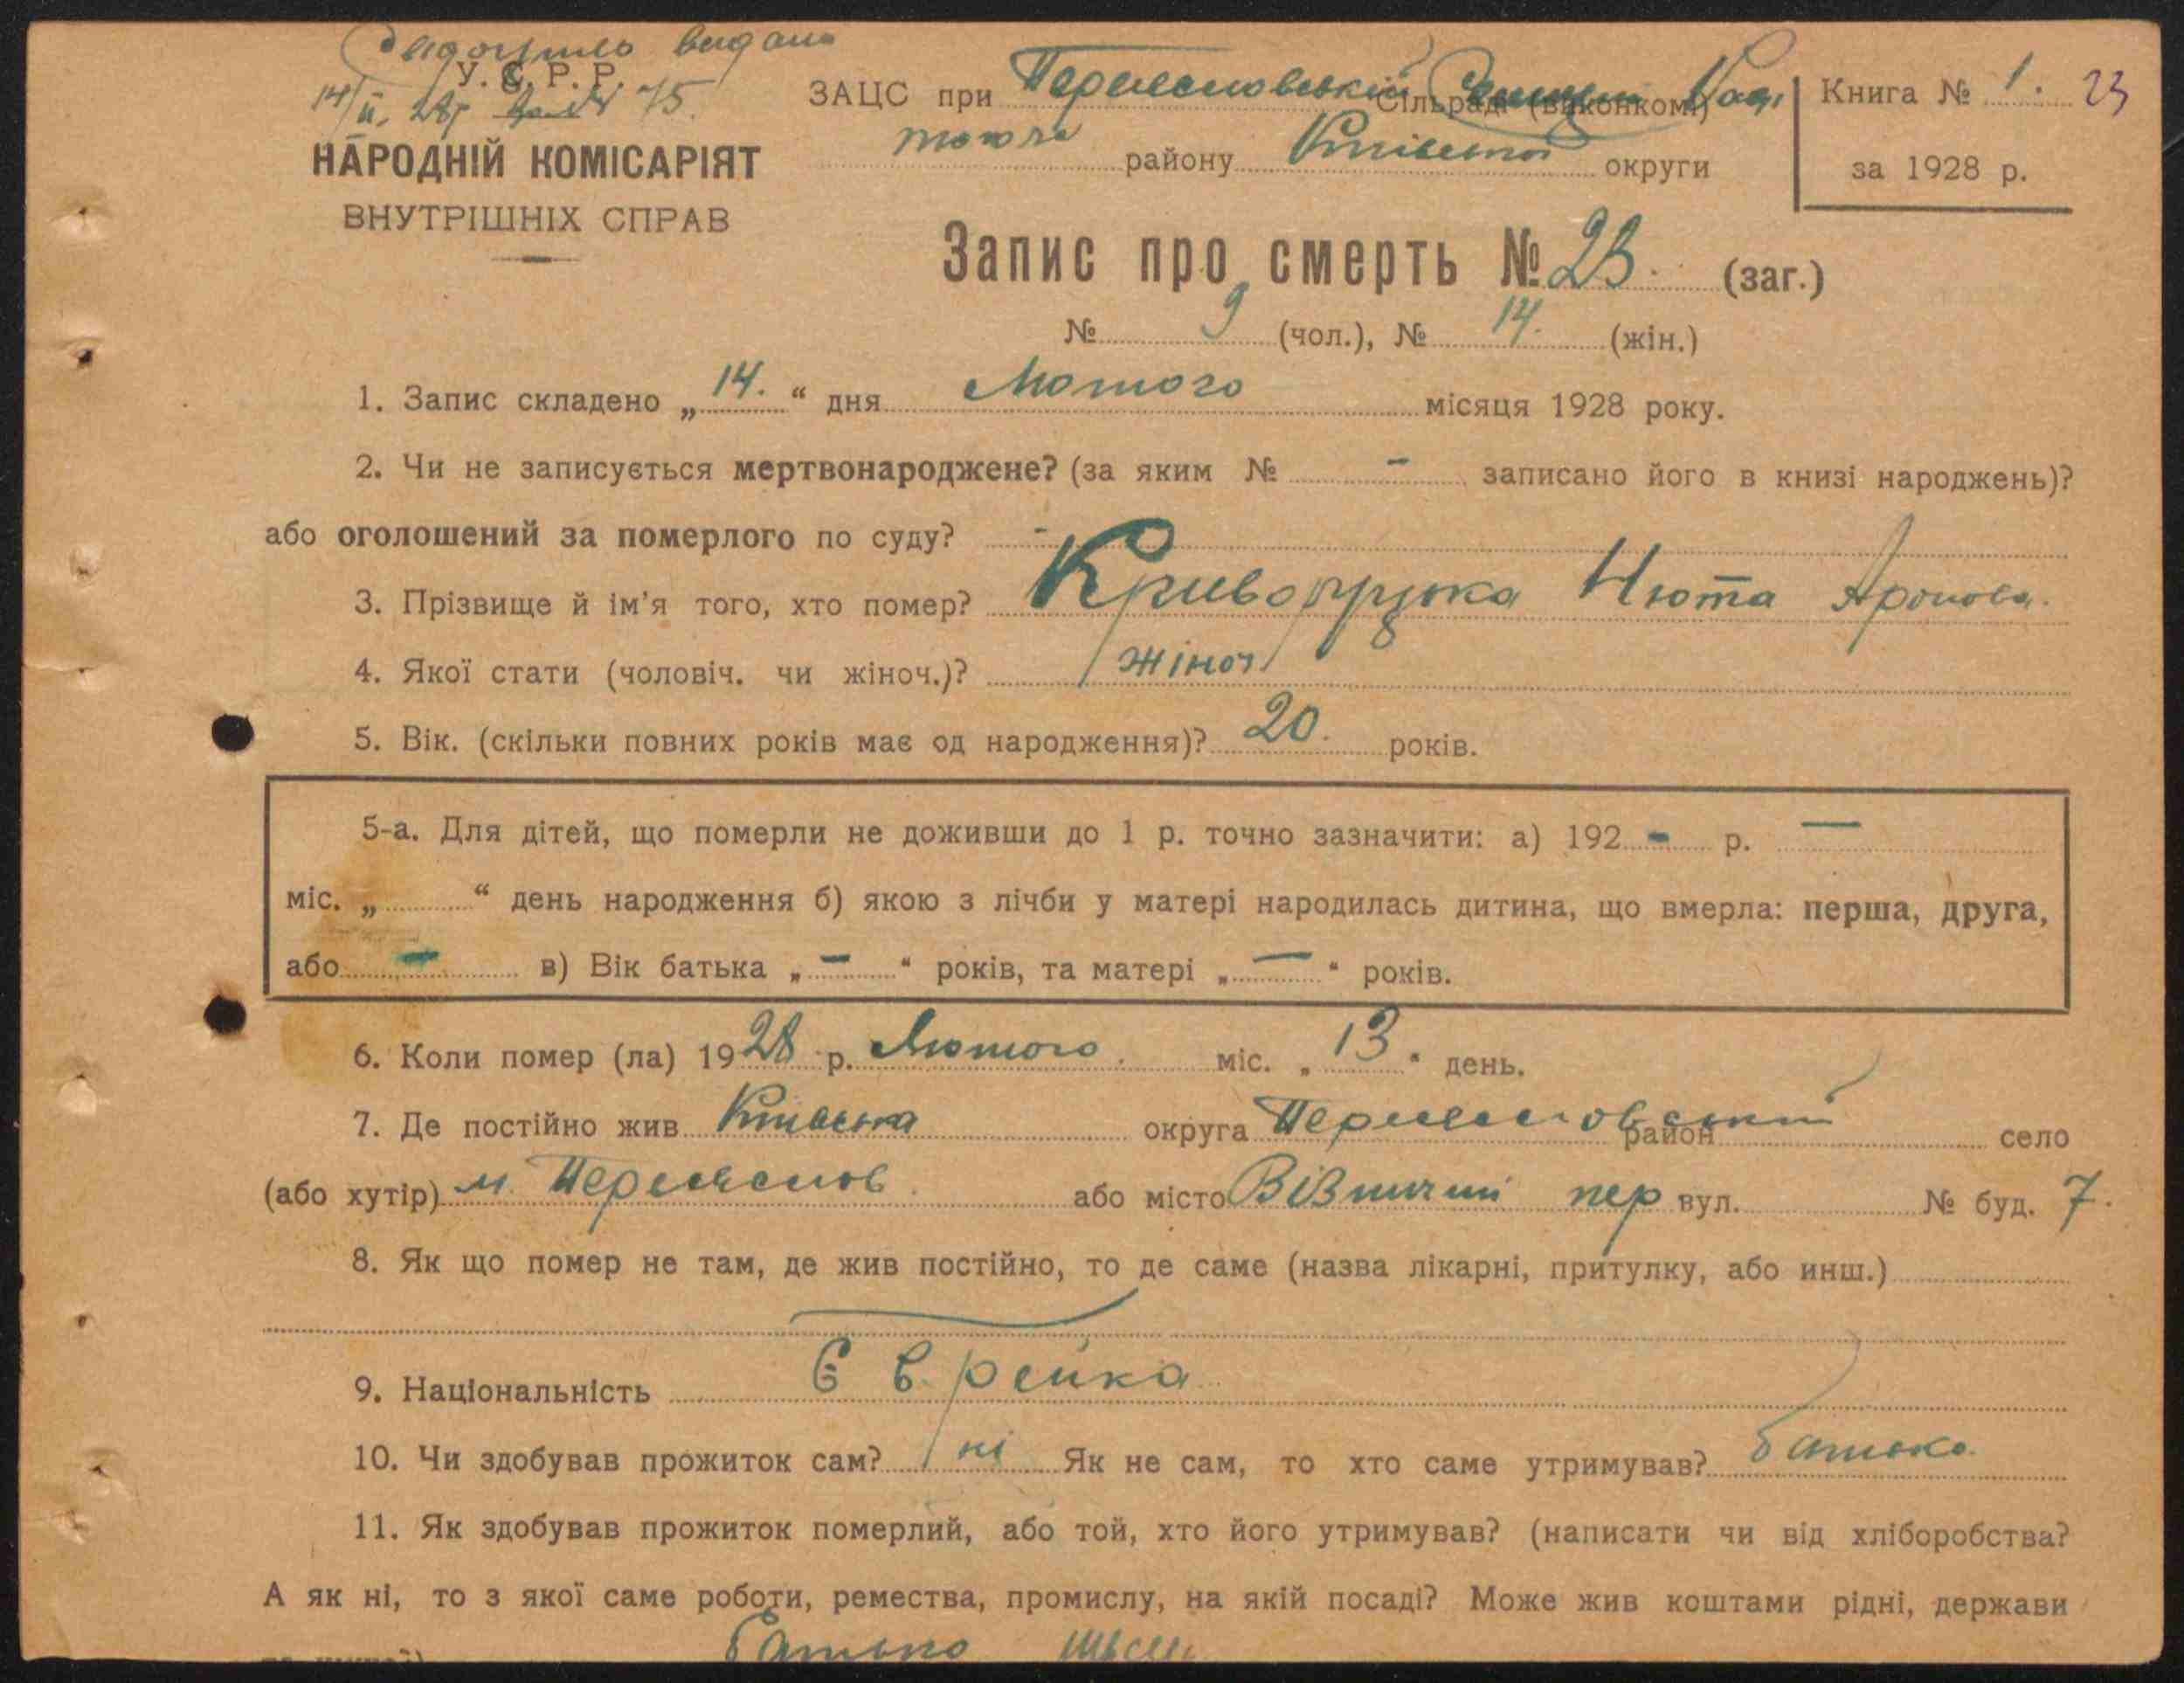 видано
У. С. Р. Р.
14/II. 28р 75.
НАРОДНІЙ КОМІСАРІЯТ
ВНУТРІШНІХ СПРАВ
ЗАЦС при Переяславській Сільраді (виконкомі)
району Київської округи
Книга № 1. 23
за 1928 р.
Запис про смерть № 23. (заг.)
№ 9 (чол.), № 14. (жін.)
1. Запис складено „ 14. “ дня Лютого місяця 1928 року.
2. Чи не записується мертвонароджене? (за яким № - записано його в книзі народжень)?
або оголошений за померлого по суду? -
3. Прізвище й ім'я того, хто помер? Криворучка Нюта Аронова.
4. Якої стати (чоловіч. чи жіноч.)? жіноч
5. Вік. (скільки повних років має од народження)? 20. років.
5-а. Для дітей, що померли не доживши до 1 р. точно зазначити: а) 192 - р. —
міс. „ “ день народження б) якою з лічби у матері народилась дитина, що вмерла: перша, друга,
або — в) Вік батька „ — “ років, та матері „ — “ років.
6. Коли помер (ла) 19 28 р. Лютого міс. „ 13 “ день.
7. Де постійно жив Київська округа Переяславський район село
(або хутір) м. Переяслов або місто пер вул. № буд. 7.
8. Як що помер не там, де жив постійно, то де саме (назва лікарні, притулку, або инш.)
9. Національність Єврейка
10. Чи здобував прожиток сам? ні Як не сам, то хто саме утримував? батько.
11. Як здобував прожиток померлий, або той, хто його утримував? (написати чи від хліборобства?
А як ні, то з якої саме роботи, ремества, промислу, на якій посаді? Може жив коштами рідні, держави
батько